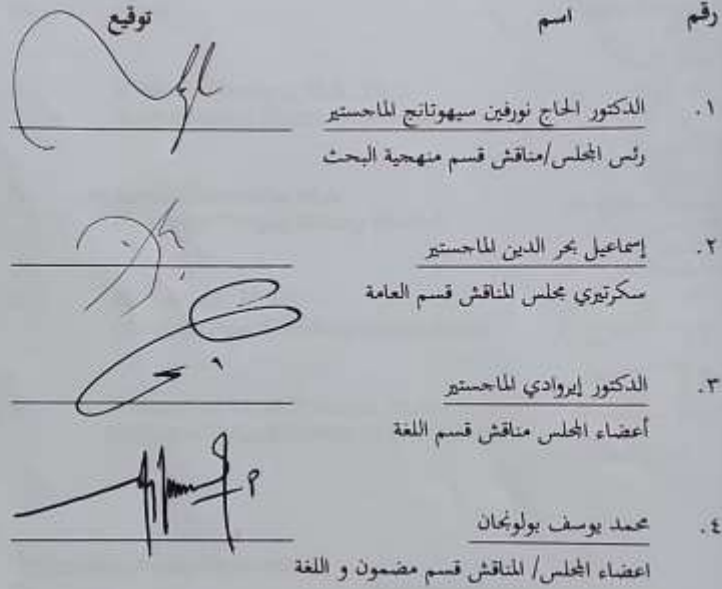 رقم اسم توقيع
١. الدكتور الحاج نورفين سيهوتانج الماجستير
رئس المجلس/مناقش قسم منهجية البحث
٢. إسماعيل بحر الدين الماجستير
سكرتيري مجلس المناقش قسم العامة
٣. الدكتور إيروادي الماجستير
أعضاء المجلس مناقش قسم اللغة
٤. محمد يوسف بولونجان
اعضاء المجلس/ المناقش قسم مضمون و اللغة